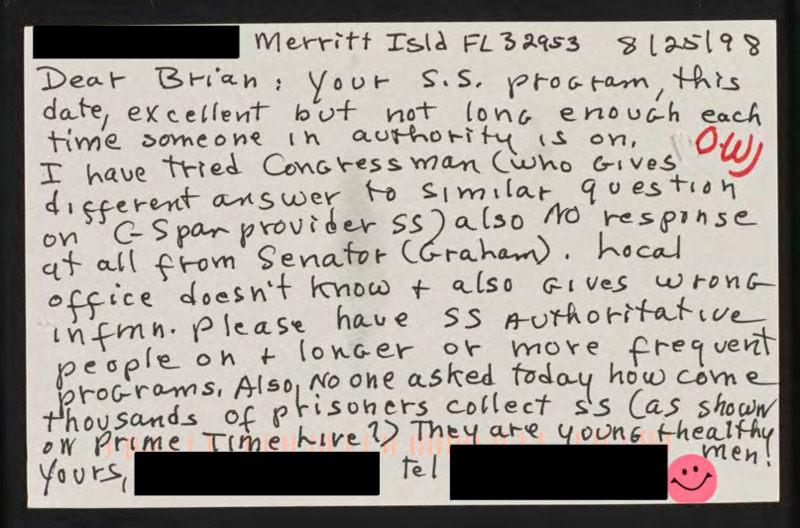 Merritt Isld FL 32953 8/25/98
Dear Brian: Your S.S. program, this
date, excellent but not long enough each
time someone in authority is on.
OW
I have tried Congressman (who gives
different answer to similar question
on C-Span provider SS) also NO response
at all from Senator (Graham). Local
office doesn't know + also gives wrong
infmn. Please have SS authoritative
people on + longer or more frequent
programs. Also, No one asked today how come
thousands of prisoners collect SS (as shown
on Prime Time Live?) They are young + healthy
men!
Yours, tel